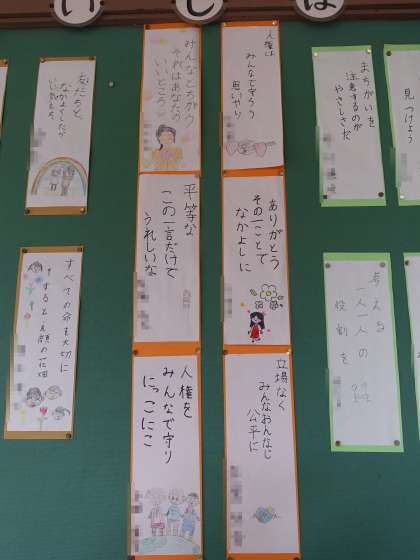 い
じ
は
見つけよう
まちがいを
注意するのが
やさしさだ
人権は
みんなで守ろう
思いやり
みんなとちがう
それはあなたの
いいところ
友だちと、
なかよくしたら
いい気もち
考える
一人一人の
役割を
ありがとう
その一ことで
なかよしに
平等な
この一言だけで
うれしいな
すべての命を大切に
すると笑顔の花畑
立場なく
みんなおんなじ
公平に
人権を
みんなで守り
にっこにこ